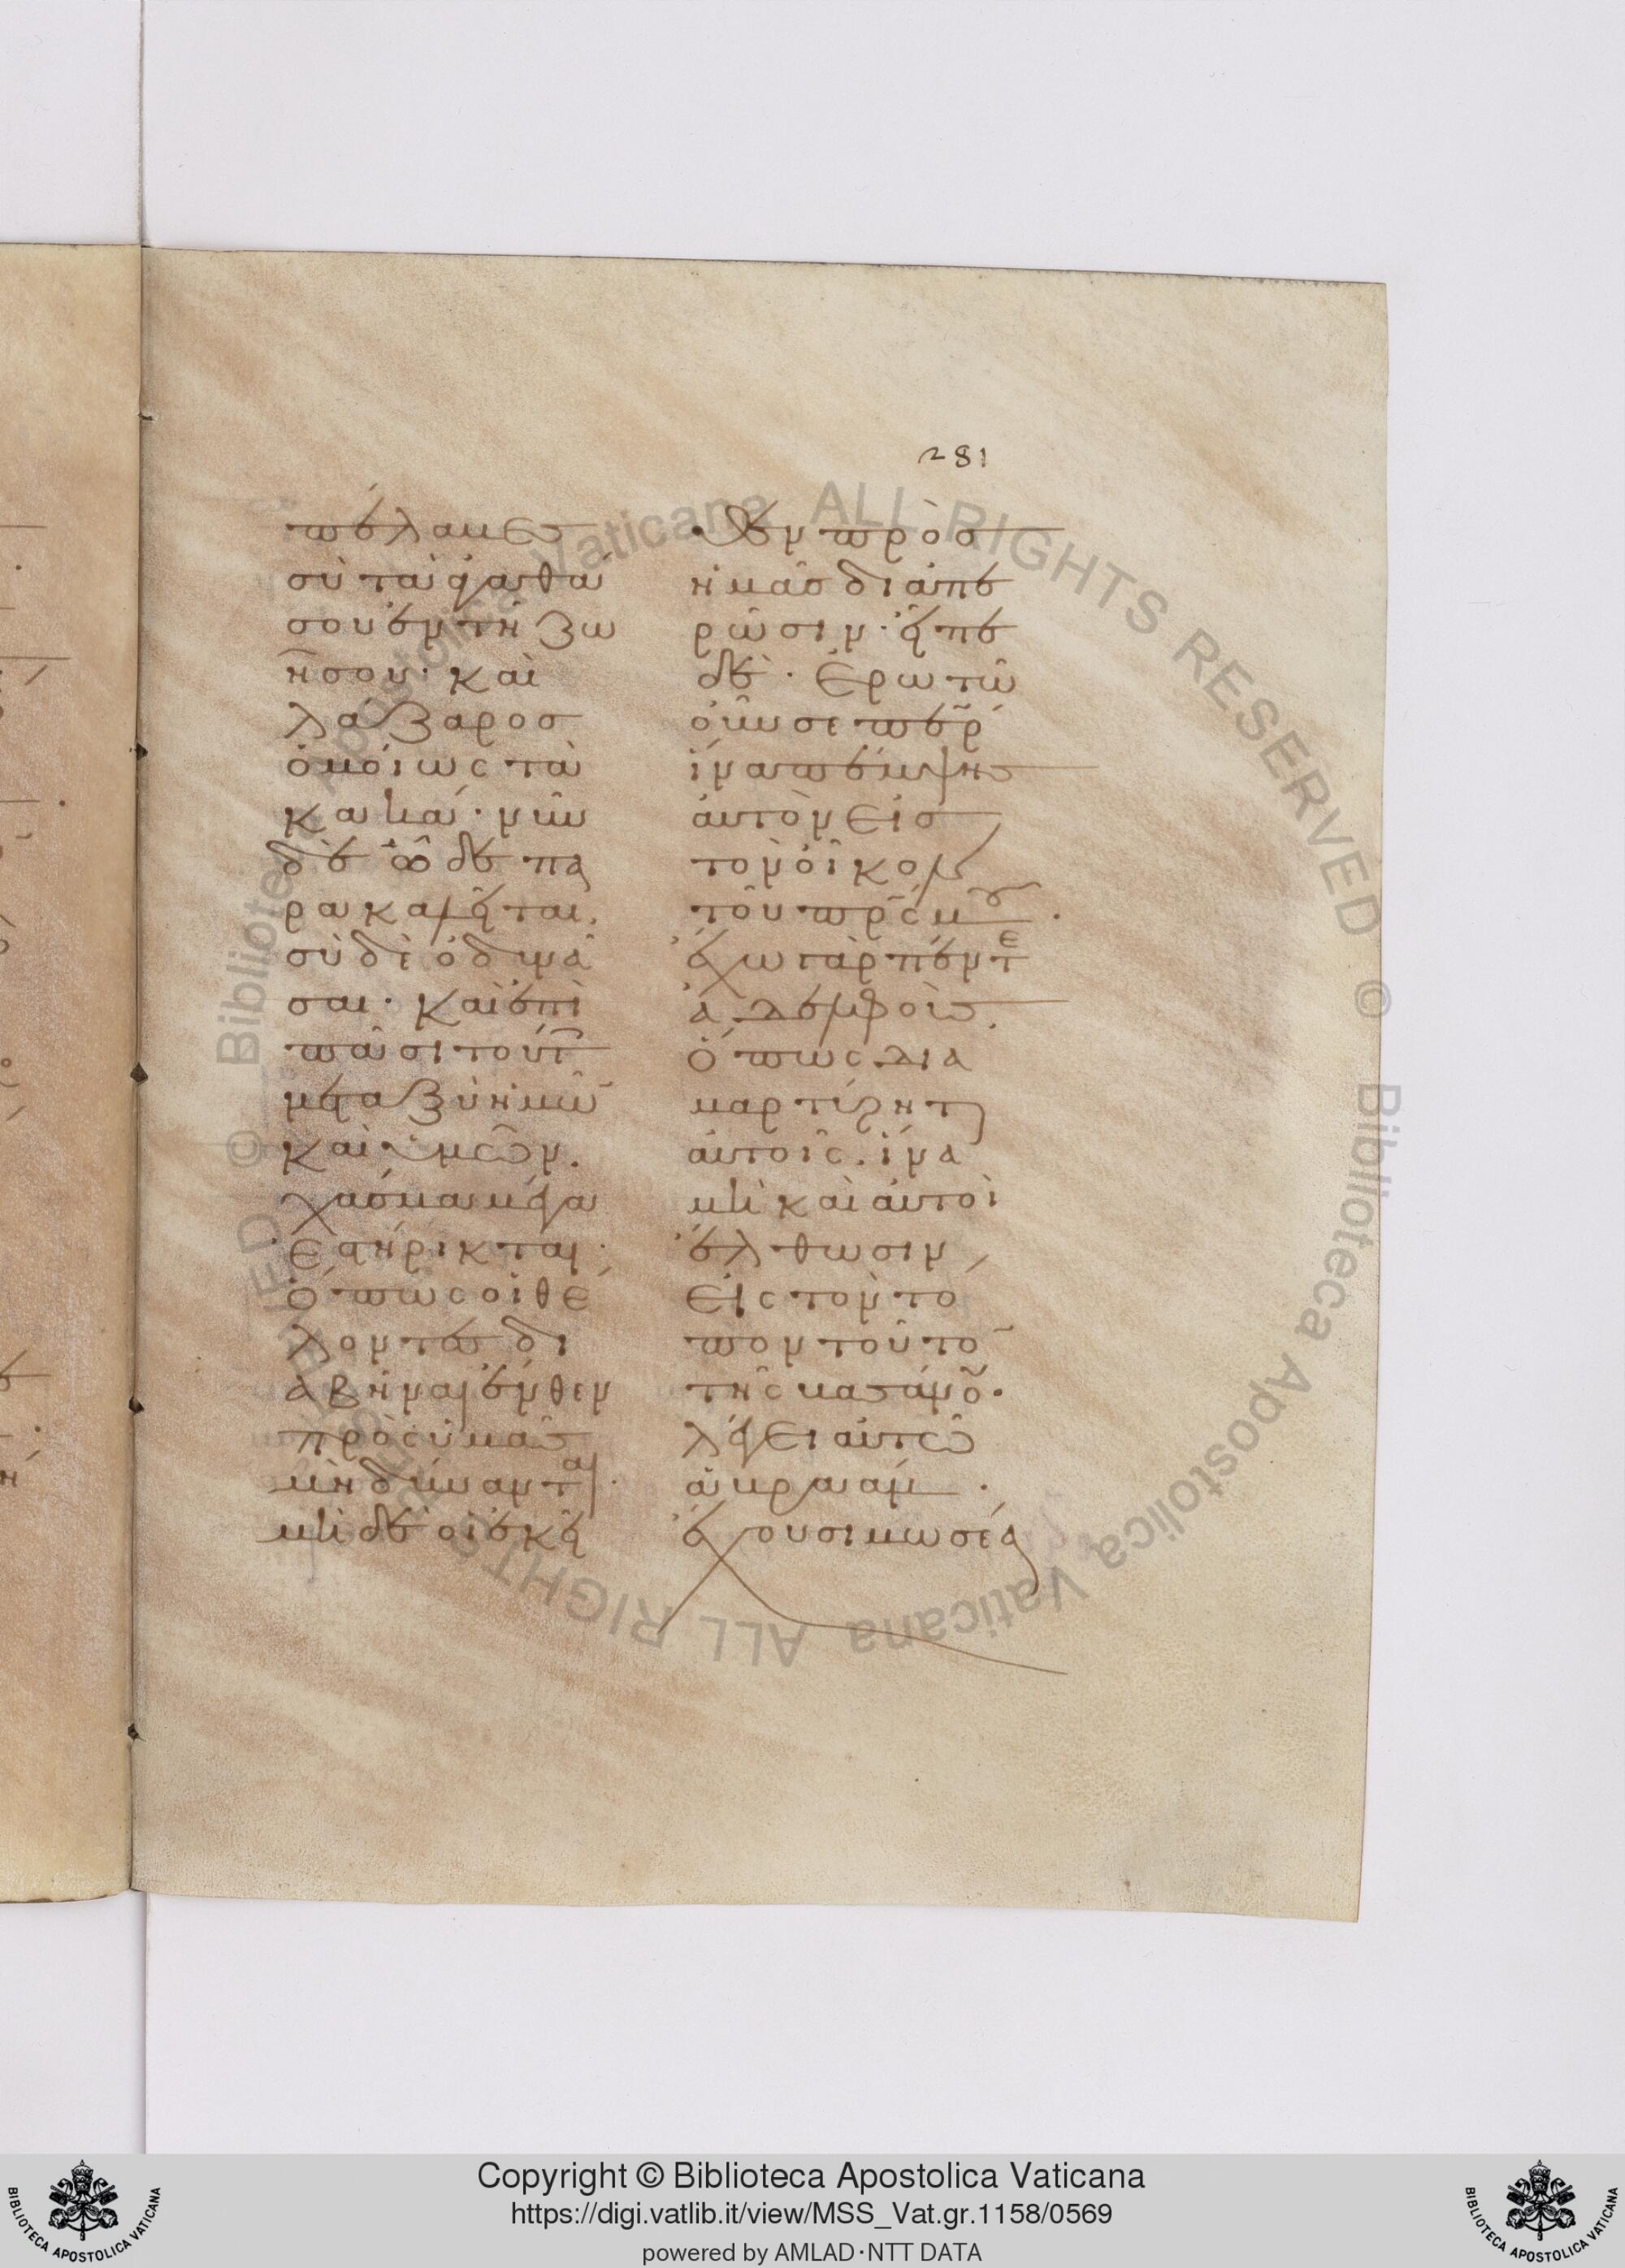 281
πέλαβες
σὺ τὰ ἀγαθά
σου ἐν τῆ ζω
ῆ σου· καὶ
λάζαρος
ὁμοίως τὰ
κακά· νῦν
δὲ ὧδε πα
ρακαλεῖται.
σὺ δὲ ὀδυνᾶ
σαι· καὶ ἐπὶ
πᾶσι τούτ
μεταξὺ ἡμῶ
καὶ ὑμῶν.
χάσμα μέγα
ἐστήρικται·
ὅπως οἱ θέ
λοντες δι
αβῆναι ἔνθεν
πρὸς ὑμᾶς
μὴ δύναντ(αι)·
μὴ δὲ οἱ ἐκεῖ
θεν πρὸς
ἡμᾶς διαπε
ρῶσιν· εἶπε
δέ· ἐρωτῶ
οὖν σε πε̅ρ
ἵνα πέμψης
αὐτὸν εἰς
τὸν οἶκον
τοῦ πρ̅ς μου.
ἔχω γὰρ πέντε
ἀδελφούς.
ὅπως δια
μαρτύρητ
αὐτοῖς. ἵνα
μὴ καὶ αὐτοὶ
ἔλθωσιν
εἰς τὸν τό
πον τοῦτο̅
τῆς βασάνου.
λέγει αὐτῶ
ἀβραάμ.
ἔχουσι μωσέα
Copyright © Biblioteca Apostolica Vaticana
https://digi.vatlib.it/view/MSS_Vat.gr.1158/0569
powered by AMLAD·NTT DATA
BIBLIOTECA APOSTOLICA VATICANA
BIBLIOTECA APOSTOLICA VATICANA